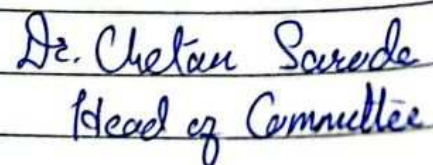 Dr. Chetan Sarode
Head of Committee